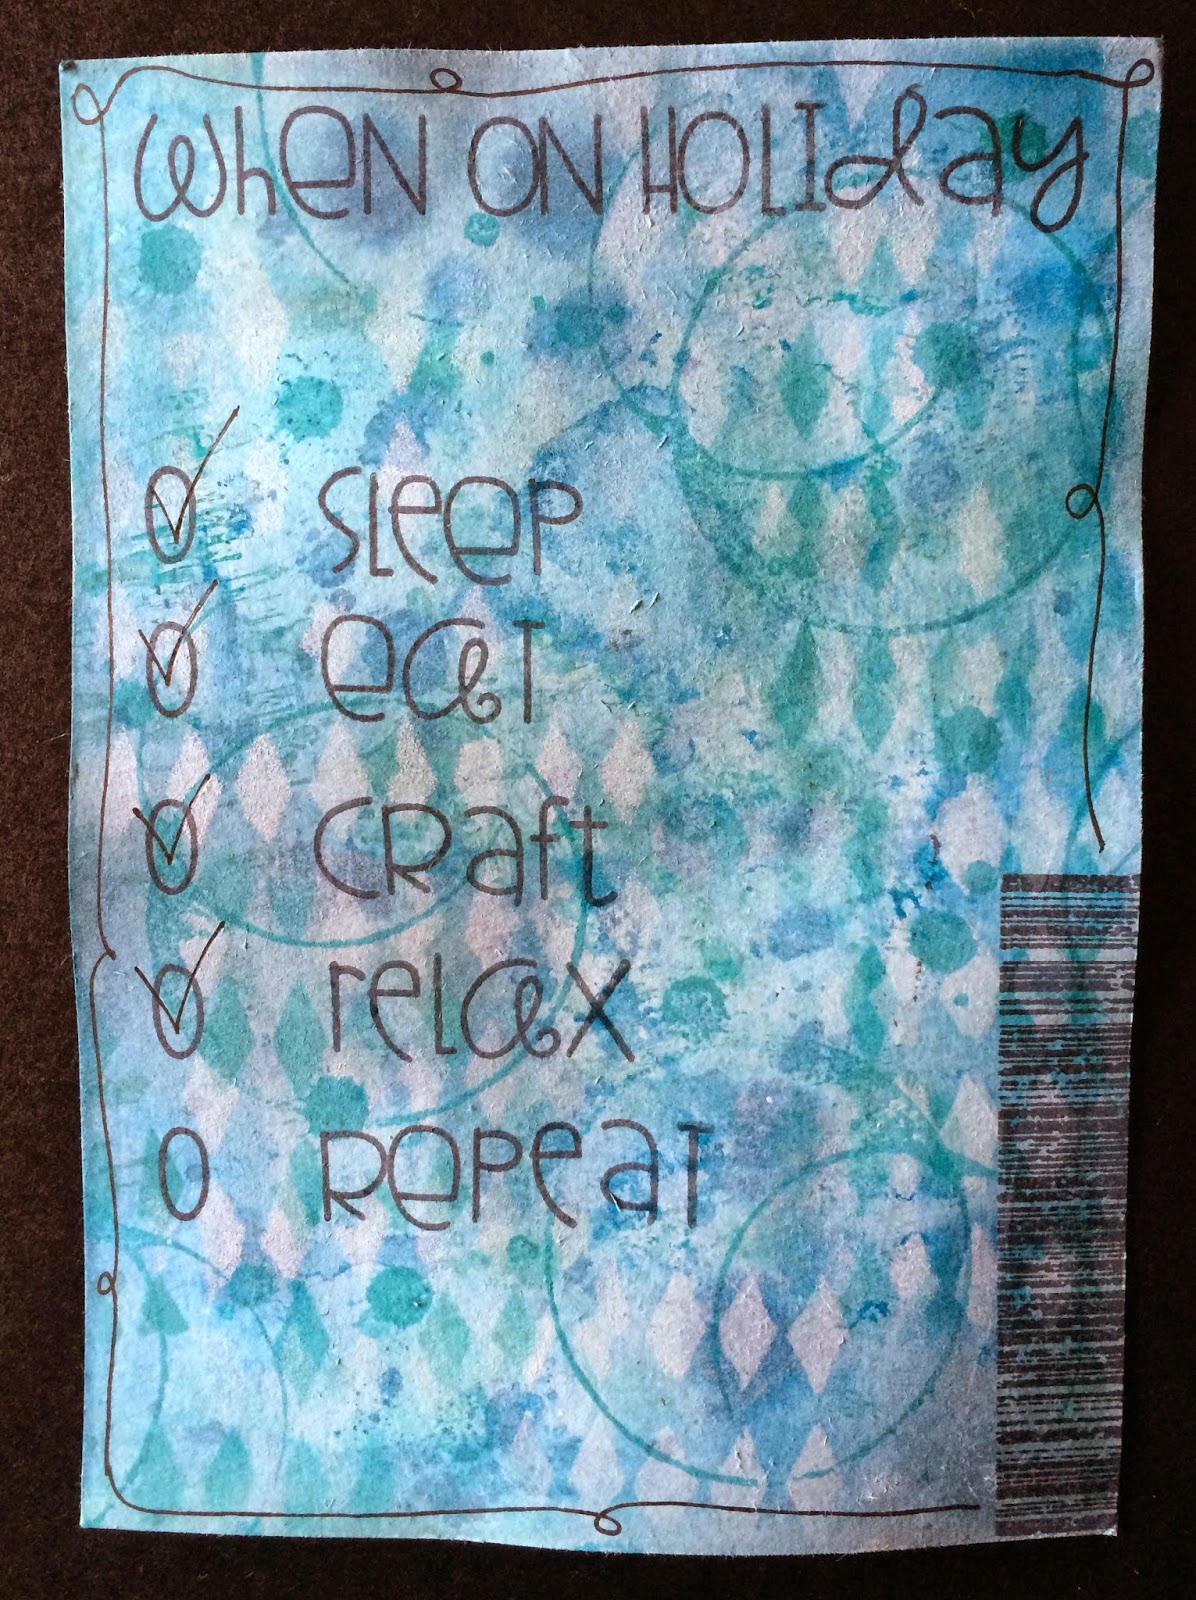 when on Holiday
Sleep
eat
Craft
relax
Repeat